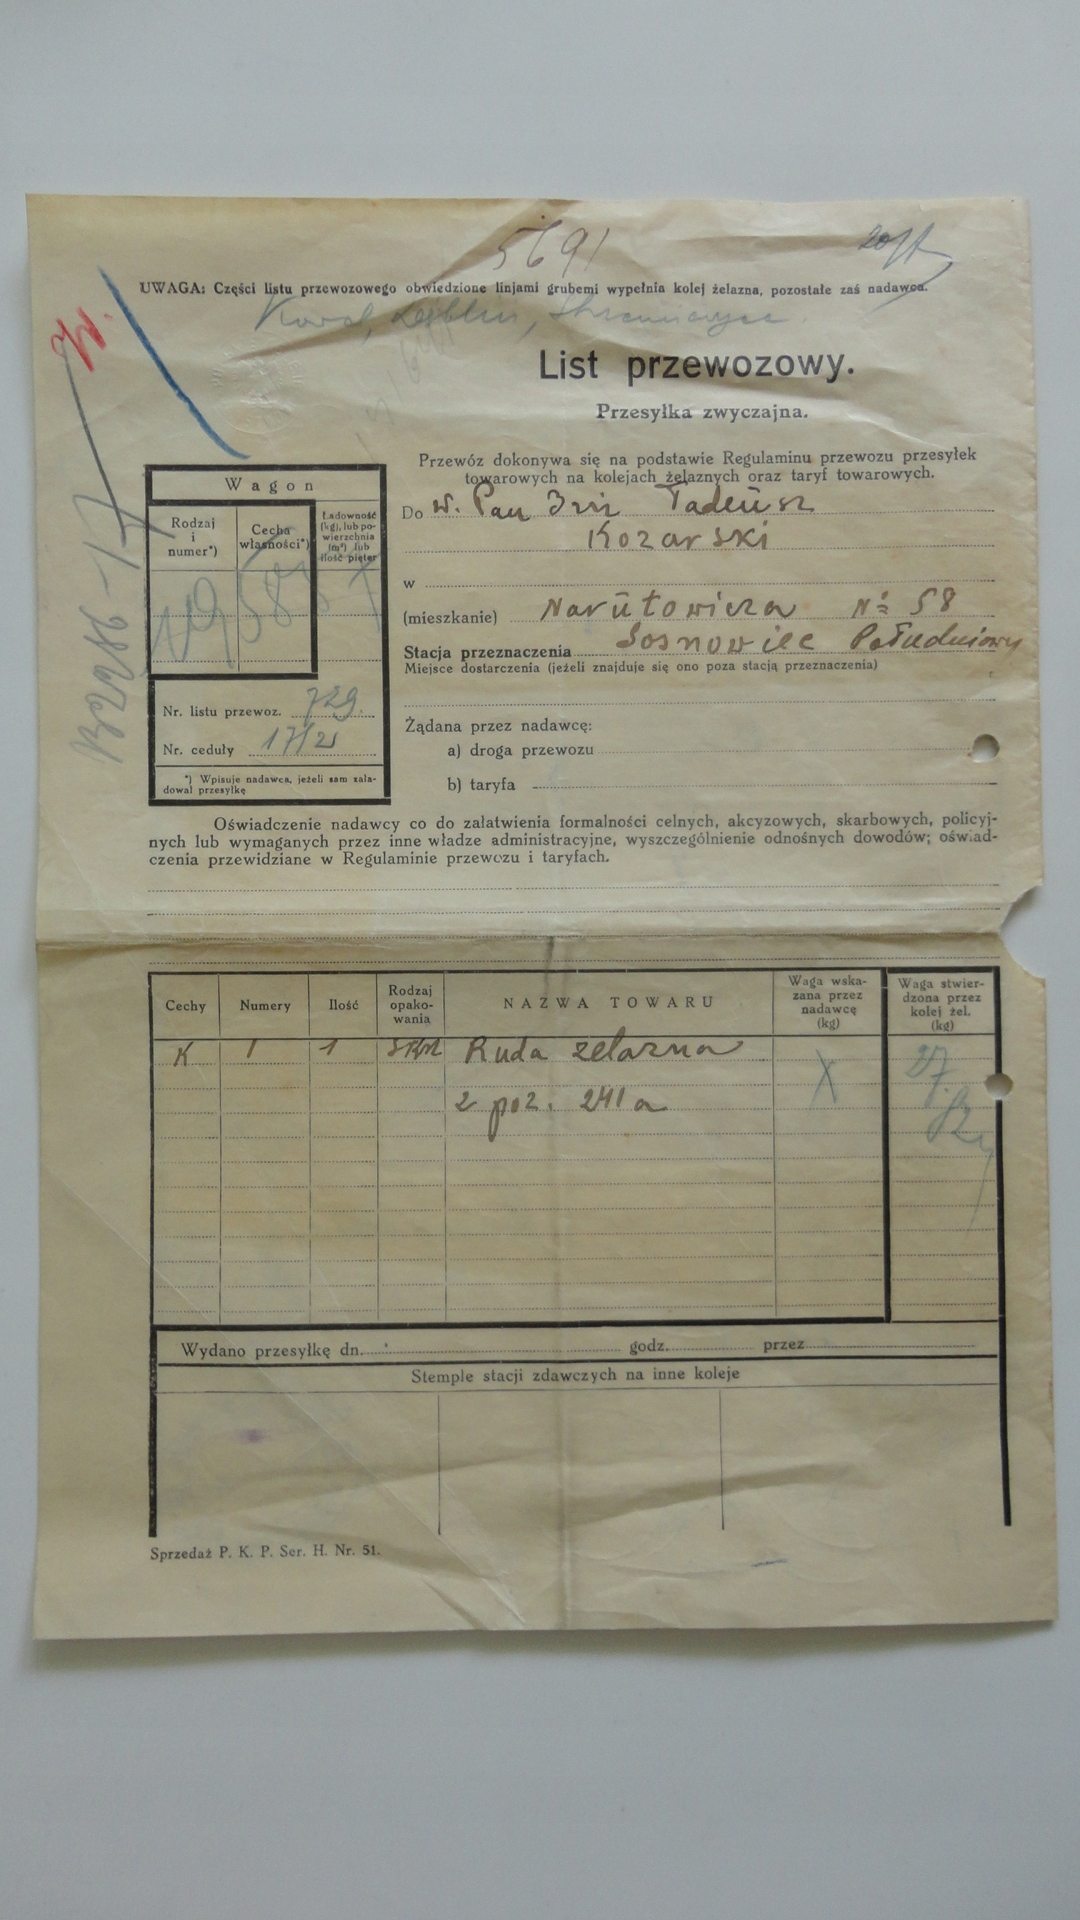 5691
UWAGA: Części listu przewozowego obwiedzione linjami grubemi wypełnia kolej żelazna, pozostałe zaś nadawca.
List przewozowy.
Przesyłka zwyczajna.
Przewóz dokonywa się na podstawie Regulaminu przewozu przesyłek
towarowych na kolejach żelaznych oraz taryf towarowych.
Wagon
Rodzaj i numer*)
Cecha własności*)
Ładowność (kg), lub powierzchnia (m²) lub ilość pięter
Nr. listu przewoz. 729.
Nr. ceduły
*) Wpisuje nadawca, jeżeli sam zała-
dował przesyłkę
Do W. Pan Inż Tadeusz
Kozarski
w
(mieszkanie) Narutowicza № 58
Stacja przeznaczenia Sosnowiec Południowy
Miejsce dostarczenia (jeżeli znajduje się ono poza stacją przeznaczenia)
Żądana przez nadawcę:
a) droga przewozu
b) taryfa
Oświadczenie nadawcy co do załatwienia formalności celnych, akcyzowych, skarbowych, policyj-
nych lub wymaganych przez inne władze administracyjne, wyszczególnienie odnośnych dowodów; oświad-
czenia przewidziane w Regulaminie przewozu i taryfach.
Cechy Numery Ilość Rodzaj opako-wania NAZWA TOWARU Waga wska-zana przez nadawcę (kg) Waga stwier-dzona przez kolej żel. (kg)
K 1 1 Ruda żelazna X 27
2 poz. 241 a
Wydano przesyłkę dn. godz. przez
Stemple stacji zdawczych na inne koleje
Sprzedaż P. K. P. Ser. H. Nr. 51.